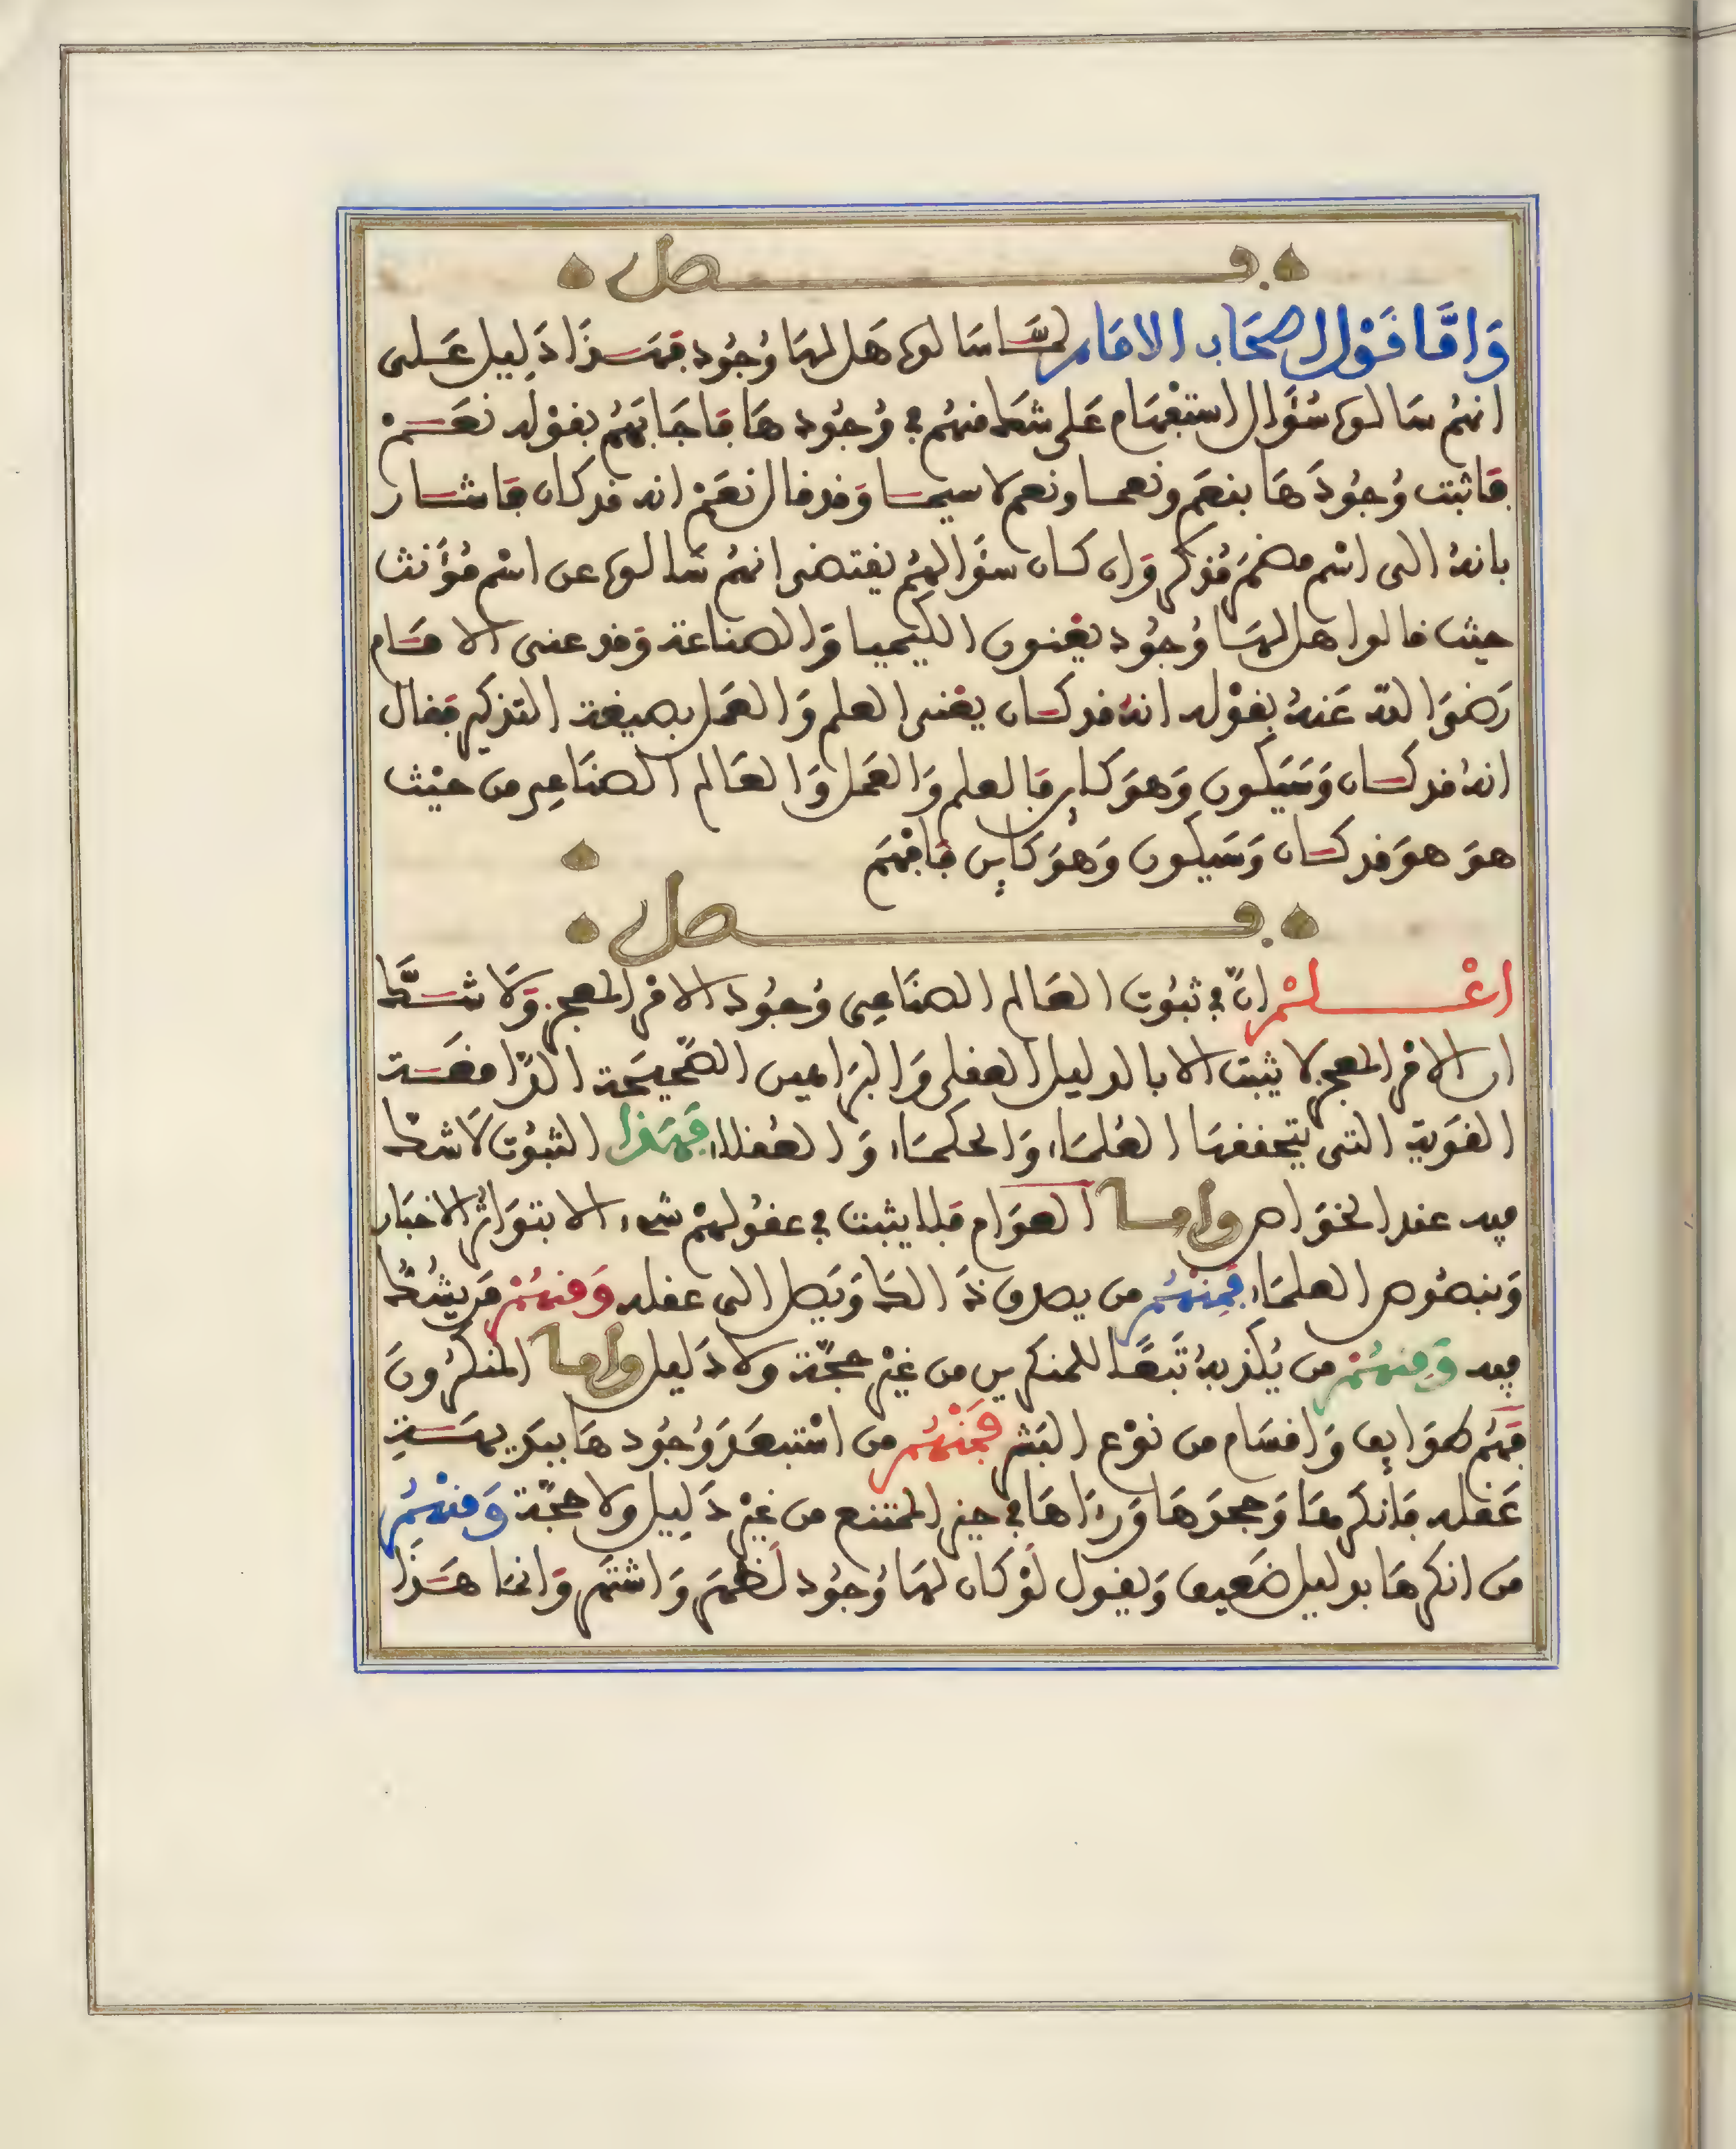 فصل
وَامَّا قَوْل اصحَاب الامَام لمَّا سَالوه هَل لهَا وُجُود فهَذَا دَلِيل عَلى
انهُم سَالوه سُؤَال استفهَام عَلى شك منهُم في وُجُودهَا فاجَابَهُم بقوْله نعَمْ
فاثبت وُجُودَهَا بنعَم ونعمَا ونعم لا سيمَا وَقد قال نعَمْ انه قد كان فاشَار
بانهُ الى اسْم مضمَر مُذكر وَان كان سؤَالهُم يقتضى انهُم سَالوه عن اسْم مُؤَنث
حيث قالوا هل لهَا وُجُود يعْنون الكيميا وَالصناعة وَقد عنى الامَام
رَضىَ اللهُ عَنهُ بقوْله انهُ قد كان يعْنى العلم وَالعمَل بصيغة التذكير فقال
انهُ قد كان وَسَيَكون وَهوَ كاين فالعلم وَالعَمَل وَالعَالم الصنَاعِى من حيْث
هوَ هوَ قد كان وَسَيكون وَهوَ كَاين فافهَم
فصل
اعْلمْ انّ في ثبُوت العَالم الصنَاعِى وُجُود الامْر المعجز وَلَا شَكَّ
ان الامْر المعجز لا يثبت الا بالدليل العقلى وَالبرَاهين الصّحيحَة الدّامغَة
القوَية التى يتحققهَا العُلمَاء وَالحكمَاء وَالعُقلاء فهَذا الثبُوت لَا شكّ
فيه عند الخوَاص وامَا العوَام فلا يثبت في عقُولهمْ شىء الا بتوَاتُر الاخبَار
وَبنصُوص العلمَاء فمِنْهُم من يصدق ذَالك وَيَصل الى عقله وَمنهُمْ مَن يشُكُّ
فيه وَمنهُمْ من يُكذبهُ تَبعًا للمنكرين من غيْر حجّة ولا دَليل وامَا المنكرُونَ
فهُم طوَايف وَاقسَام من نوْع البَشر فمَنْهُم من اسْتبعَدَ وُجُودهَا ببَديهَةِ
عَقله فانكرهَا وَجحدَهَا وَرءاهَا في حيز الممْتنع من غيْر دَلِيل ولا حجّة وَمنْهُم
مَن انكرهَا بدليل ضَعيف وَيقول لوْ كان لهَا وُجُود لَظهَر وَاشتهَر وَانمَا هَذَا